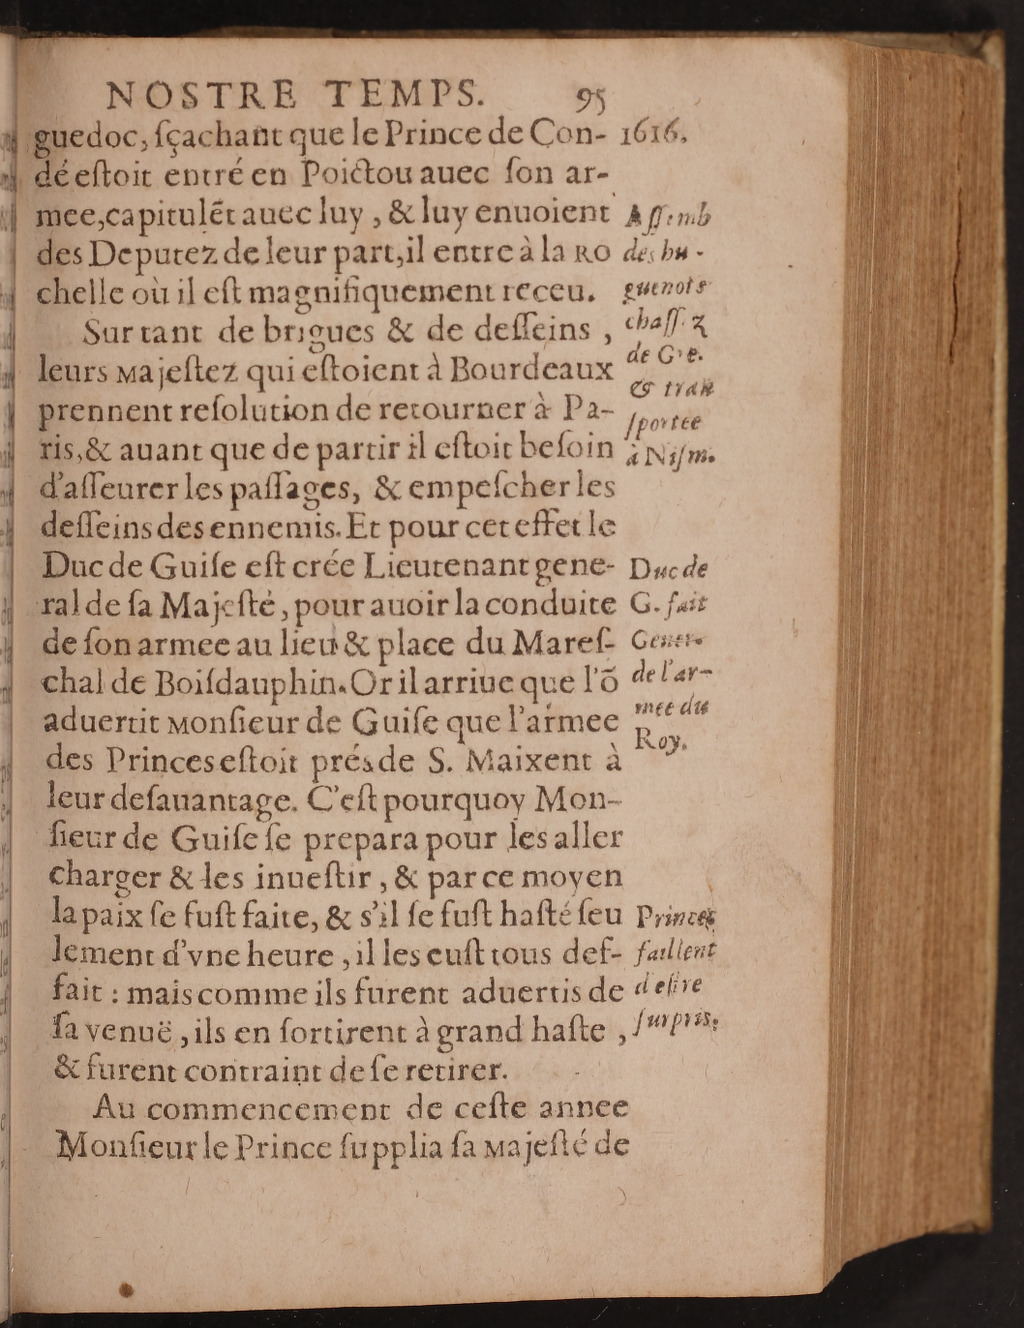 NOSTRE TEMPS. 95
guedoc, ſçachant que le Prince de Con- 1616.
dé eſtoit entré en Poictou auec ſon ar-
mee, capitulét auec luy, & luy enuoient
des Deputez de leur part, il entre à la Ro
chelle où il eſt magnifiquement receu.
Sur tant de brigues & de deſſeins,
leurs Majeſtez qui eſtoient à Bourdeaux
prennent reſolution de retourner à Pa-
ris, & auant que de partir il eſtoit beſoin
d'aſſeurer les paſſages, & empeſcher les
deſſeins des ennemis. Et pour cet effet le
Duc de Guiſe eſt crée Lieutenant gene-
ral de ſa Majeſté, pour auoir la conduite
de ſon armee au lieu & place du Mareſ-
chal de Boiſdauphin. Or il arriue que l'õ
aduertit Monſieur de Guiſe que l'armee
des Princes eſtoit prés de S. Maixent à
leur deſauantage. C'eſt pourquoy Mon-
ſieur de Guiſe ſe prepara pour les aller
charger & les inueſtir, & par ce moyen
la paix ſe fuſt faite, & s'il ſe fuſt haſté ſeu
lement d'vne heure, il les euſt tous def-
fait : mais comme ils furent aduertis de
ſa venuë, ils en ſortirent à grand haſte,
& furent contraint de ſe retirer.
Au commencement de ceſte annee
Monſieur le Prince ſupplia ſa Majeſté de
Aſſemb
des hu-
guenots
chaſſ. z
de Gre.
& tran
ſportee
à Niſm.
Duc de
G. fait
Genera
de l'ar-
mee du
Roy.
Princes
faillent
d'eſtre
ſurpris.